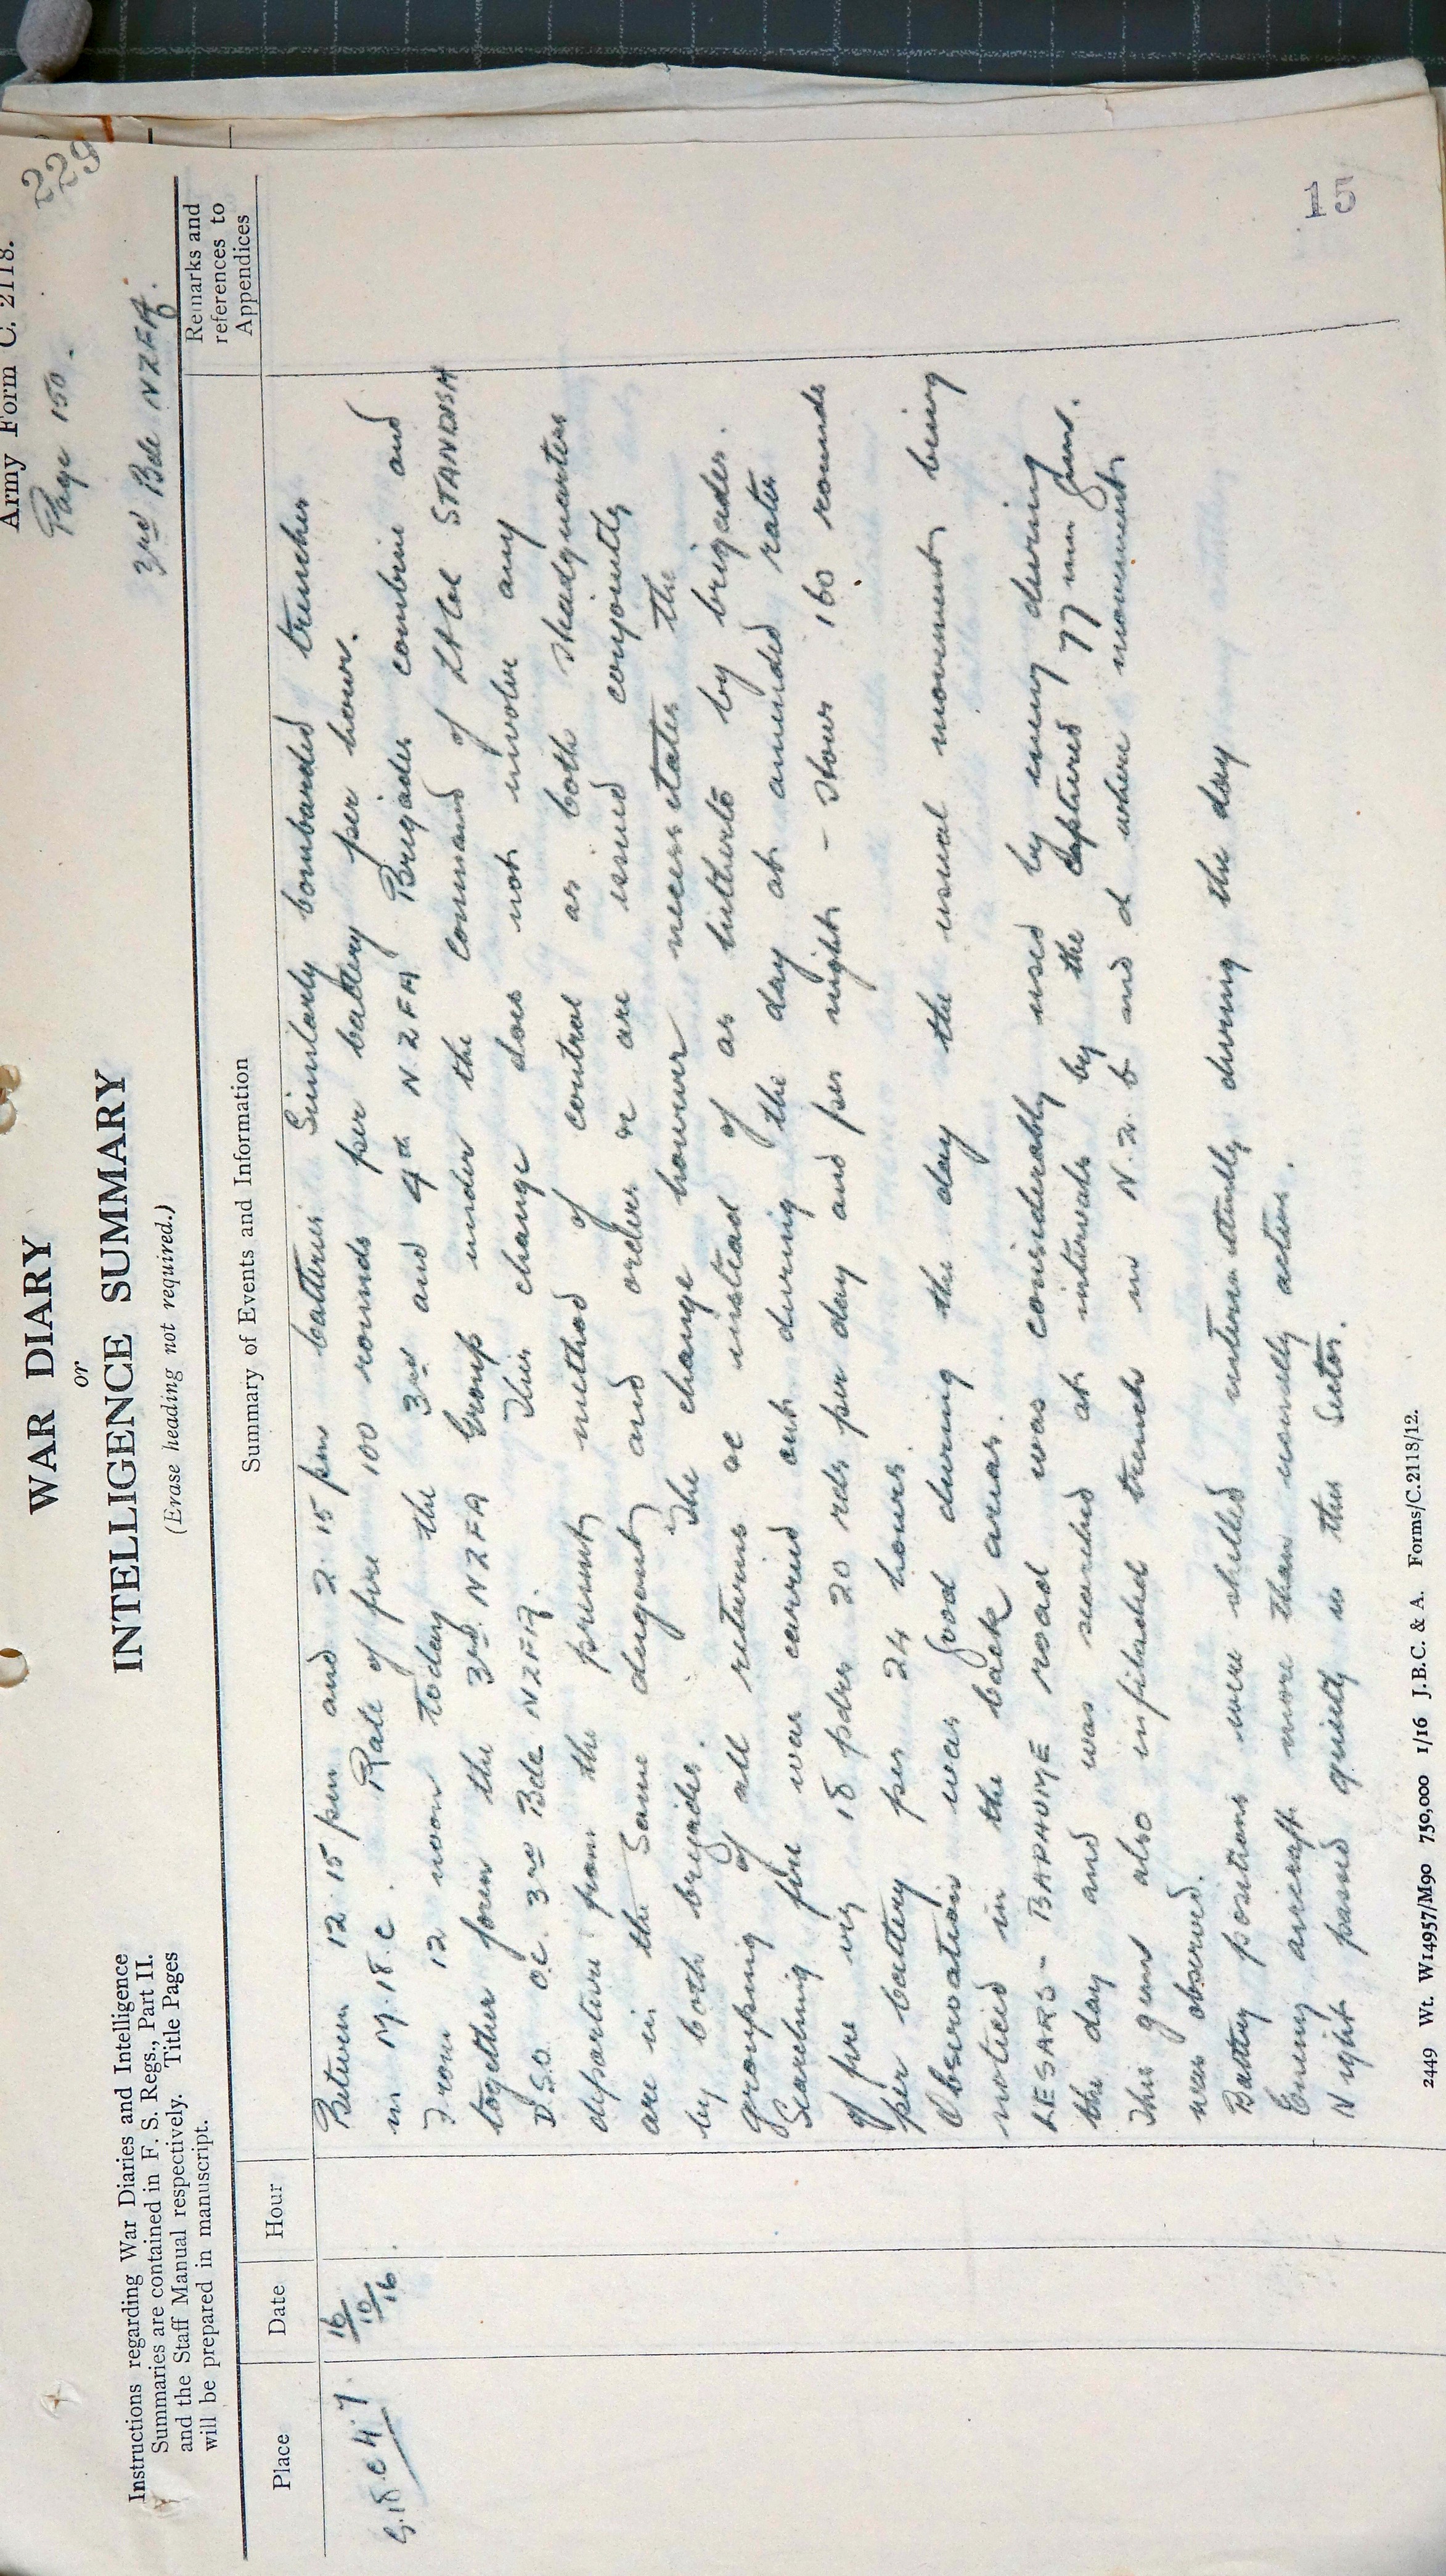 Army Form C. 2118.
229
Page 150.
WAR DIARY
or
INTELLIGENCE SUMMARY
(Erase heading not required.)
3rd Bde NZFA.
Instructions regarding War Diaries and Intelligence
Summaries are contained in F. S. Regs., Part II.
and the Staff Manual respectively. Title Pages
will be prepared in manuscript.
Place Date Hour Summary of Events and Information Remarks and references to Appendices
S.18.c.4.7. 16/10/16. Between 12.15 pm and 2.15 pm batteries Similarly bombarded trenches
in M.18.c. Rate of fire 100 rounds per battery per hour.
From 12 noon today the 3rd and 4th NZFA Brigades combine and
together form the 3rd NZFA Group under the command of Lt Col STANDISH
D.S.O. O.C. 3rd Bde NZFA. This change does not involve any
departure from the present method of control as both Headquarters
are in the same dugout and orders &c are issued conjointly
by both brigades. The change however necessitates the
grouping of all returns &c instead of as hitherto by brigades.
Searching fire was carried out during the day at amended rates
of fire viz 18 pdrs 20 rds per day and per night - Hows 160 rounds
per battery per 24 hours.
Observation was good during the day the usual movement being
noticed in the back areas.
LESARS - BAPHOME road was considerably used by enemy during
the day and was searched at intervals by the captured 77 mm guns.
This guns also enfiladed trench in N.2.b and d where movement
was observed.
Battery positions were shelled intermittently during the day
Enemy aircraft more than usually active.
Night passed quietly in this Sector.
15
2449 Wt. W14957/M90 750,000 1/16 J.B.C. & A. Forms/C.2118/12.